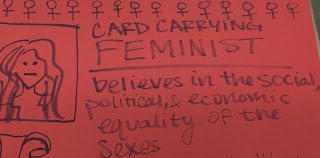 CARD CARRYING
FEMINIST
believes in the social,
political, & economic
equality of the
sexes